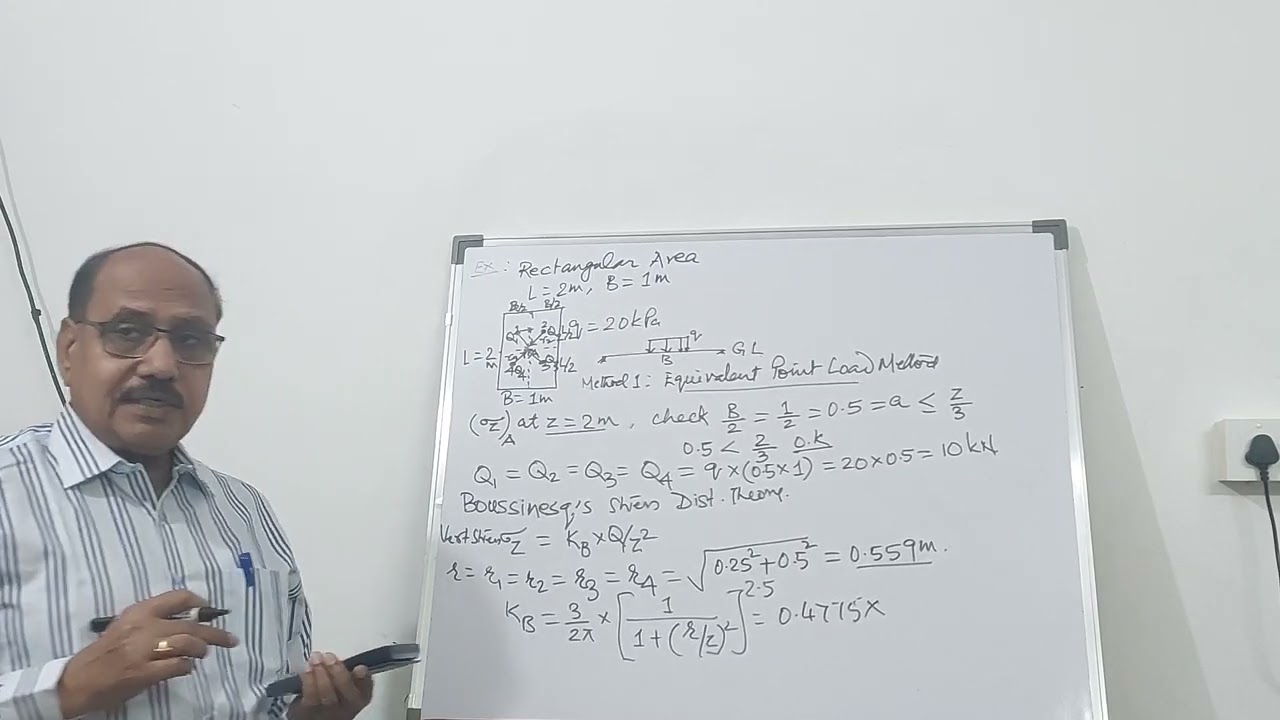 Ex: Rectangular Area
L = 2m, B = 1m
B/2 B/2
q = 20kPa
L/2
L = 2m
L/2
q
B
GL
B = 1m
Method 1: Equivalent Point Load Method
(σz)A at z = 2m, check B/2 = 1/2 = 0.5 = a ≤ z/3
0.5 < 2/3 O.K
Q1 = Q2 = Q3 = Q4 = q × (0.5 × 1) = 20 × 0.5 = 10 kN
Boussinesq's Stress Dist. Theory.
Vert stress σz = KB × Q/z²
r = r1 = r2 = r3 = r4 = √(0.25² + 0.5²) = 0.559m.
KB = 3/2π × [1/(1 + (r/z)²)]^2.5 = 0.4775×